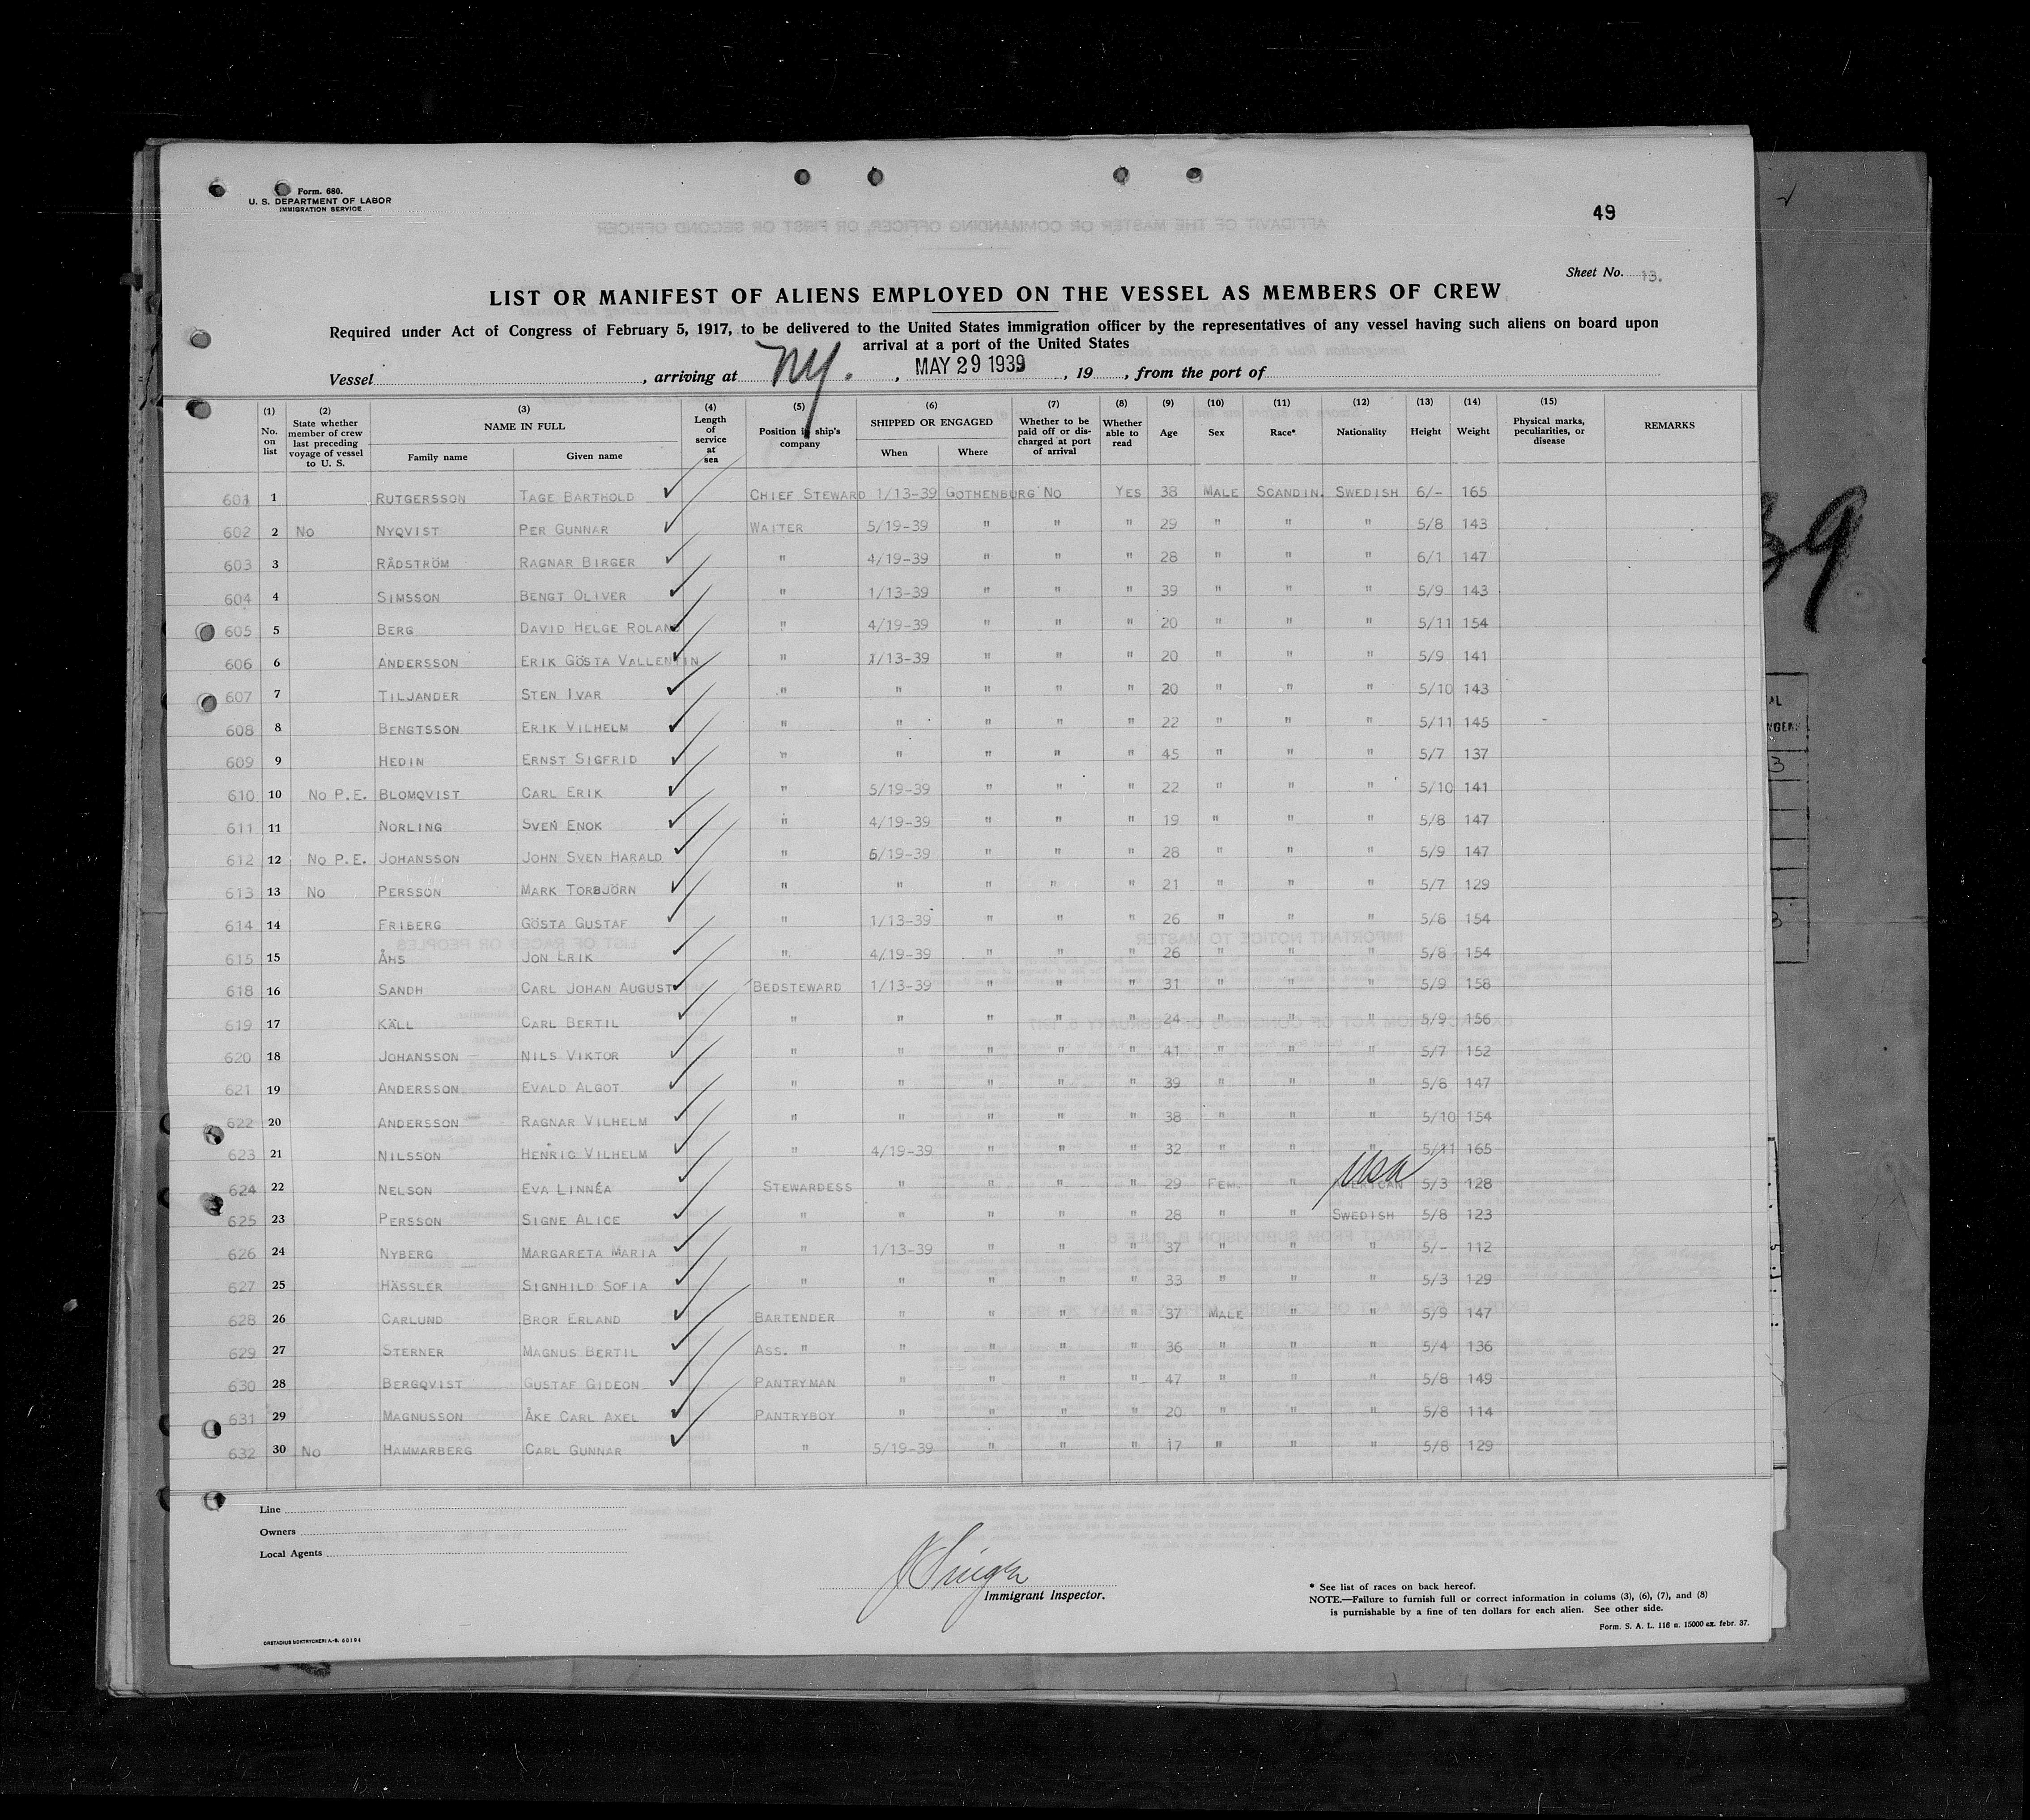 Form. 680.
U. S. DEPARTMENT OF LABOR
IMMIGRATION SERVICE
49
Sheet No. 13.
LIST OR MANIFEST OF ALIENS EMPLOYED ON THE VESSEL AS MEMBERS OF CREW
Required under Act of Congress of February 5, 1917, to be delivered to the United States immigration officer by the representatives of any vessel having such aliens on board upon
arrival at a port of the United States
Vessel , arriving at NY. , MAY 29 1939 , 19 , from the port of
(1) No. on list (2) State whether member of crew last preceding voyage of vessel to U. S. (3) NAME IN FULL Family name Given name (4) Length of service at sea (5) Position in ship's company (6) SHIPPED OR ENGAGED When Where (7) Whether to be paid off or discharged at port of arrival (8) Whether able to read (9) Age (10) Sex (11) Race* (12) Nationality (13) Height (14) Weight (15) Physical marks, peculiarities, or disease REMARKS
601 1 RUTGERSSON TAGE BARTHOLD CHIEF STEWARD 1/13-39 GOTHENBURG NO YES 38 MALE SCANDIN. SWEDISH 6/- 165
602 2 NO NYQVIST PER GUNNAR WAITER 5/19-39 " " " 29 " " " 5/8 143
603 3 RÅDSTRÖM RAGNAR BIRGER " 4/19-39 " " " 28 " " " 6/1 147
604 4 SIMSSON BENGT OLIVER " 1/13-39 " " " 39 " " " 5/9 143
605 5 BERG DAVID HELGE ROLAND " 4/19-39 " " " 20 " " " 5/11 154
606 6 ANDERSSON ERIK GÖSTA VALLENTIN " 1/13-39 " " " 20 " " " 5/9 141
607 7 TILJANDER STEN IVAR " " " " " 20 " " " 5/10 143
608 8 BENGTSSON ERIK VILHELM " " " " " 22 " " " 5/11 145
609 9 HEDIN ERNST SIGFRID " " " " " 45 " " " 5/7 137
610 10 NO P.E. BLOMQVIST CARL ERIK " 5/19-39 " " " 22 " " " 5/10 141
611 11 NORLING SVEN ENOK " 4/19-39 " " " 19 " " " 5/8 147
612 12 NO P.E. JOHANSSON JOHN SVEN HARALD " 5/19-39 " " " 28 " " " 5/9 147
613 13 NO PERSSON MARK TORBJÖRN " " " " " 21 " " " 5/7 129
614 14 FRIBERG GÖSTA GUSTAF " 1/13-39 " " " 26 " " " 5/8 154
615 15 ÅHS JON ERIK " 4/19-39 " " " 26 " " " 5/8 154
618 16 SANDH CARL JOHAN AUGUST BEDSTEWARD 1/13-39 " " " 31 " " " 5/9 158
619 17 KÄLL CARL BERTIL " " " " " 24 " " " 5/9 156
620 18 JOHANSSON NILS VIKTOR " " " " " 41 " " " 5/7 152
621 19 ANDERSSON EVALD ALGOT " " " " " 39 " " " 5/8 147
622 20 ANDERSSON RAGNAR VILHELM " " " " " 38 " " " 5/10 154
623 21 NILSSON HENRIC VILHELM " 4/19-39 " " " 32 " " " 5/11 165
624 22 NELSON EVA LINNÉA STEWARDESS " " " " 29 FEM. " USA 5/3 128
625 23 PERSSON SIGNE ALICE " " " " " 28 " " SWEDISH 5/8 123
626 24 NYBERG MARGARETA MARIA " 1/13-39 " " " 37 " " " 5/- 112
627 25 HÄSSLER SIGNHILD SOFIA " " " " " 33 " " " 5/3 129
628 26 CARLUND BROR ERLAND BARTENDER " " " " 37 MALE " " 5/9 147
629 27 STERNER MAGNUS BERTIL ASS. " " " " " 36 " " " 5/4 136
630 28 BERGQVIST GUSTAF GIDEON PANTRYMAN " " " " 47 " " " 5/8 149
631 29 MAGNUSSON ÅKE CARL AXEL PANTRYBOY " " " " 20 " " " 5/8 114
632 30 NO HAMMARBERG CARL GUNNAR " 5/19-39 " " " 17 " " " 5/8 129
Line
Owners
Local Agents
Immigrant Inspector.
* See list of races on back hereof.
NOTE.—Failure to furnish full or correct information in colums (3), (6), (7), and (8)
is punishable by a fine of ten dollars for each alien. See other side.
Form. S. A. L. 116 n. 15000 ex. febr. 37.